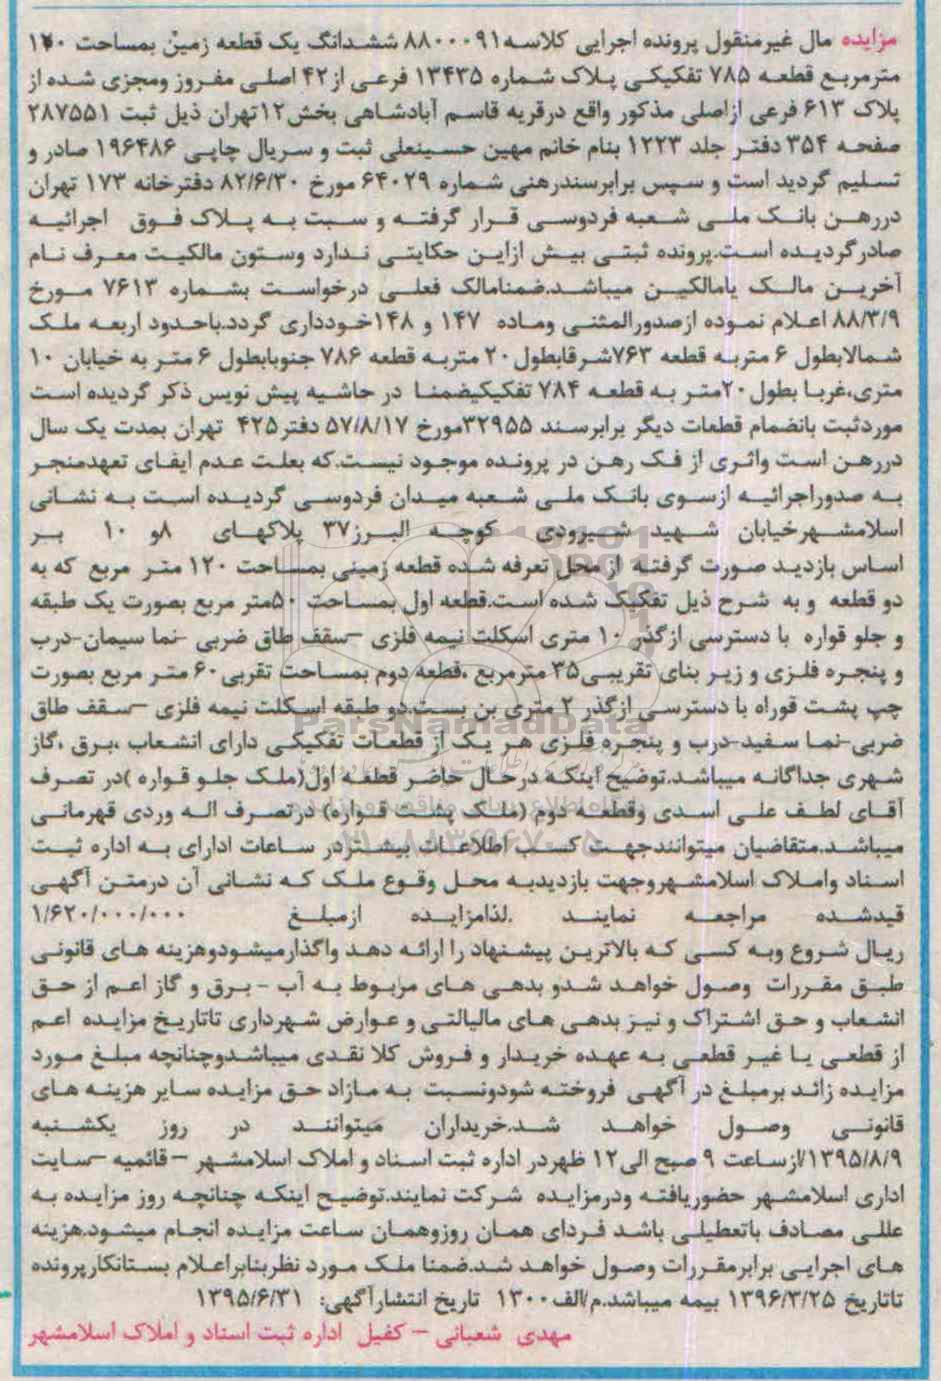 مزایده مال غیرمنقول پرونده اجرایی کلاسه ۸۸۰۰۰۹۱ ششدانگ یک قطعه زمین بمساحت ۱۲۰
مترمربع قطعه ۷۸۵ تفکیکی پلاک شماره ۱۳۴۳۵ فرعی از ۴۲ اصلی مفروز ومجزی شده از
پلاک ۶۱۳ فرعی ازاصلی مذکور واقع درقریه قاسم آبادشاهی بخش۱۲تهران ذیل ثبت ۲۸۷۵۵۱
صفحه ۳۵۴ دفتر جلد ۱۲۲۳ بنام خانم مهین حسینعلی ثبت و سریال چاپی ۱۹۶۴۸۶ صادر و
تسلیم گردید است و سپس برابرسندرهنی شماره ۶۴۰۲۹ مورخ ۸۲/۶/۳۰ دفترخانه ۱۷۳ تهران
دررهن بانک ملی شعبه فردوسی قرار گرفته و سبت به پلاک فوق اجرائیه
صادرگردیده است.پرونده ثبتی بیش ازاین حکایتی ندارد وستون مالکیت معرف نام
آخرین مالک یامالکین میباشد.ضمنامالک فعلی درخواست بشماره ۷۶۱۳ مورخ
۸۸/۳/۹ اعلام نموده ازصدورالمثنی وماده ۱۴۷ و ۱۴۸خودداری گردد.باحدود اربعه ملک
شمالابطول ۶ متربه قطعه ۷۶۳شرقابطول۲۰ متربه قطعه ۷۸۶ جنوبابطول ۶ متر به خیابان ۱۰
متری،غربا بطول۲۰متر به قطعه ۷۸۴ تفکیکیضمنا در حاشیه پیش نویس ذکر گردیده است
موردثبت بانضمام قطعات دیگر برابرسند ۳۲۹۵۵مورخ ۵۷/۸/۱۷ دفتر۴۲۵ تهران بمدت یک سال
دررهن است واثری از فک رهن در پرونده موجود نیست.که بعلت عدم ایفای تعهدمنجر
به صدوراجرائیه ازسوی بانک ملی شعبه میدان فردوسی گردیده است به نشانی
اسلامشهرخیابان شهید شیرودی کوچه البرز۳۷ پلاکهای ۸و ۱۰ بر
اساس بازدید صورت گرفته از محل تعرفه شده قطعه زمینی بمساحت ۱۲۰ متر مربع که به
دو قطعه و به شرح ذیل تفکیک شده است.قطعه اول بمساحت ۵۰متر مربع بصورت یک طبقه
و جلو قواره با دسترسی ازگذر ۱۰ متری اسکلت نیمه فلزی –سقف طاق ضربی -نما سیمان-درب
و پنجره فلزی و زیر بنای تقریبی۳۵ مترمربع ،قطعه دوم بمساحت تقربی۶۰ متر مربع بصورت
چپ پشت قوراه با دسترسی ازگذر ۲ متری بن بست.دو طبقه اسکلت نیمه فلزی –سقف طاق
ضربی-نما سفید-درب و پنجره فلزی هر یک از قطعات تفکیکی دارای انشعاب ،برق ،گاز
شهری جداگانه میباشد.توضیح اینکه درحال حاضر قطعه اول(ملک جلو قواره )در تصرف
آقای لطف علی اسدی وقطعه دوم (ملک پشت قواره) درتصرف اله وردی قهرمانی
میباشد.متقاضیان میتوانندجهت کسب اطلاعات بیشتردر ساعات ادارای به اداره ثبت
اسناد واملاک اسلامشهروجهت بازدیدبه محل وقوع ملک که نشانی آن درمتن آگهی
قیدشده مراجعه نمایند .لذامزایده ازمبلغ ۱/۶۲۰/۰۰۰/۰۰۰
ریال شروع وبه کسی که بالاترین پیشنهاد را ارائه دهد واگذارمیشودوهزینه های قانونی
طبق مقررات وصول خواهد شدو بدهی های مربوط به آب - برق و گاز اعم از حق
انشعاب و حق اشتراک و نیز بدهی های مالیالتی و عوارض شهرداری تاتاریخ مزایده اعم
از قطعی یا غیر قطعی به عهده خریدار و فروش کلا نقدی میباشدوچنانچه مبلغ مورد
مزایده زائد برمبلغ در آگهی فروخته شودونسبت به مازاد حق مزایده سایر هزینه های
قانونی وصول خواهد شد.خریداران میتوانند در روز یکشنبه
۱۳۹۵/۸/۹/ازساعت ۹ صبح الی۱۲ ظهردر اداره ثبت اسناد و املاک اسلامشهر – قائمیه –سایت
اداری اسلامشهر حضوریافته ودرمزایده شرکت نمایند.توضیح اینکه چنانچه روز مزایده به
عللی مصادف باتعطیلی باشد فردای همان روزوهمان ساعت مزایده انجام میشود.هزینه
های اجرایی برابرمقررات وصول خواهد شد.ضمنا ملک مورد نظربنابراعلام بستانکارپرونده
تاتاریخ ۱۳۹۶/۳/۲۵ بیمه میباشد.م/الف۱۳۰۰ تاریخ انتشارآگهی: ۱۳۹۵/۶/۳۱
مهدی شعبانی – کفیل اداره ثبت اسناد و املاک اسلامشهر
ParsNamadData